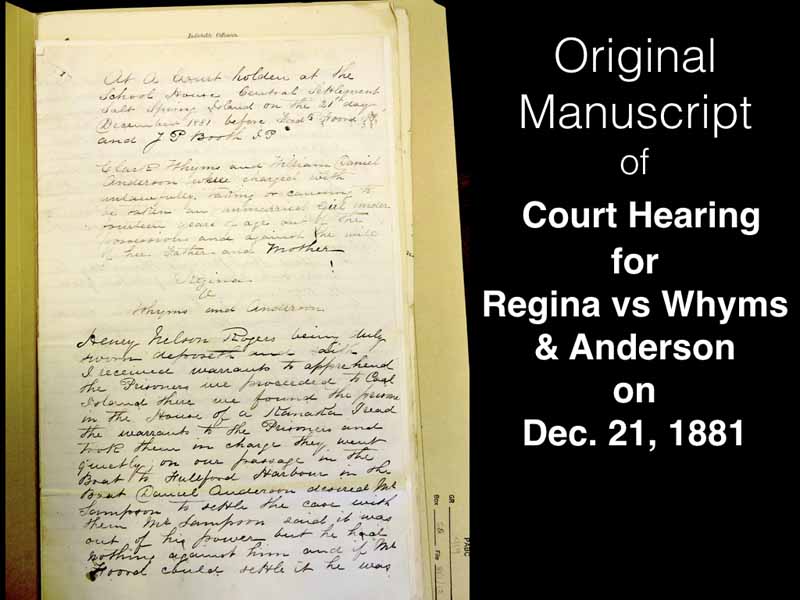 Indictable Offences.
At a Court holden at the
School House Central Settlement
Salt Spring Island on the 21st day
December 1881 before Fredk Foord JP
and J P Booth J.P.
Clark Whyms and William Daniel
Anderson were charged with
unlawfully taking or causing to
be taken an unmarried girl under
sixteen years of age out of the
possession and against the will
of her Father and Mother
Regina
v
Whyms and Anderson
Henry Nelson Rogers being duly
sworn deposeth and saith
I received warrants to apprehend
the Prisoners we proceeded to Coal
Island there we found the prisone
in the House of a Kanaka I read
the warrants to the Prisoners and
took them in charge they went
quietly, on our passage in the
Boat to Fulford Harbour in the
Boat Daniel Anderson desired Mr
Sampson to settle the case with
them Mr Sampson said it was
out of his power but he had
nothing against him and if Mr
Foord could settle it he was
PABC
GR
Box
File
Original
Manuscript
of
Court Hearing
for
Regina vs Whyms
& Anderson
on
Dec. 21, 1881